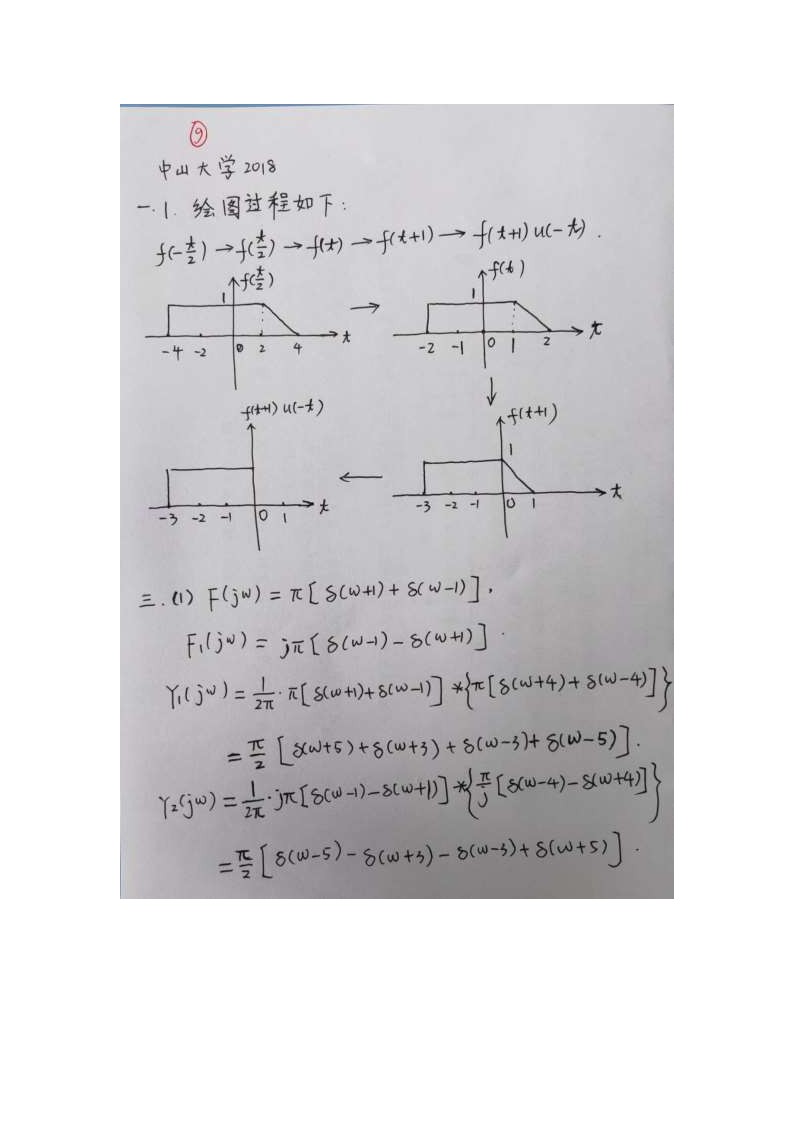 9
中山大学2018
一.1. 绘图过程如下:
f(-t/2)→f(t/2)→f(t)→f(t+1)→f(t+1)u(-t).
f(t/2)
1
-4 -2 0 2 4 t
f(t)
1
-2 -1 0 1 2 t
f(t+1)u(-t)
-3 -2 -1 0 1 t
f(t+1)
1
-3 -2 -1 0 1 t
三.(1) F(jω)=π[δ(ω+1)+δ(ω-1)],
F₁(jω)= jπ[δ(ω-1)-δ(ω+1)].
Y₁(jω)=1/2π·π[δ(ω+1)+δ(ω-1)]*{π[δ(ω+4)+δ(ω-4)]}
=π/2[δ(ω+5)+δ(ω+3)+δ(ω-3)+δ(ω-5)].
Y₂(jω)=1/2π·jπ[δ(ω-1)-δ(ω+1)]*{π/j[δ(ω-4)-δ(ω+4)]}
=π/2[δ(ω-5)-δ(ω+3)-δ(ω-3)+δ(ω+5)].